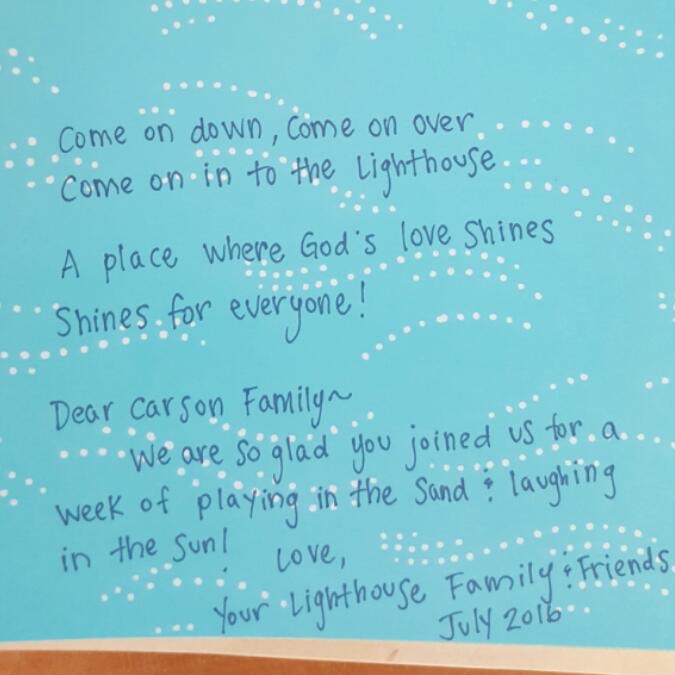 Come on down, Come on over
Come on in to the Lighthouse
A place where God's love Shines
Shines for everyone!
Dear Carson Family~
We are so glad you joined us for a
week of playing in the Sand & laughing
in the Sun!
Love,
Your Lighthouse Family & Friends
July 2016